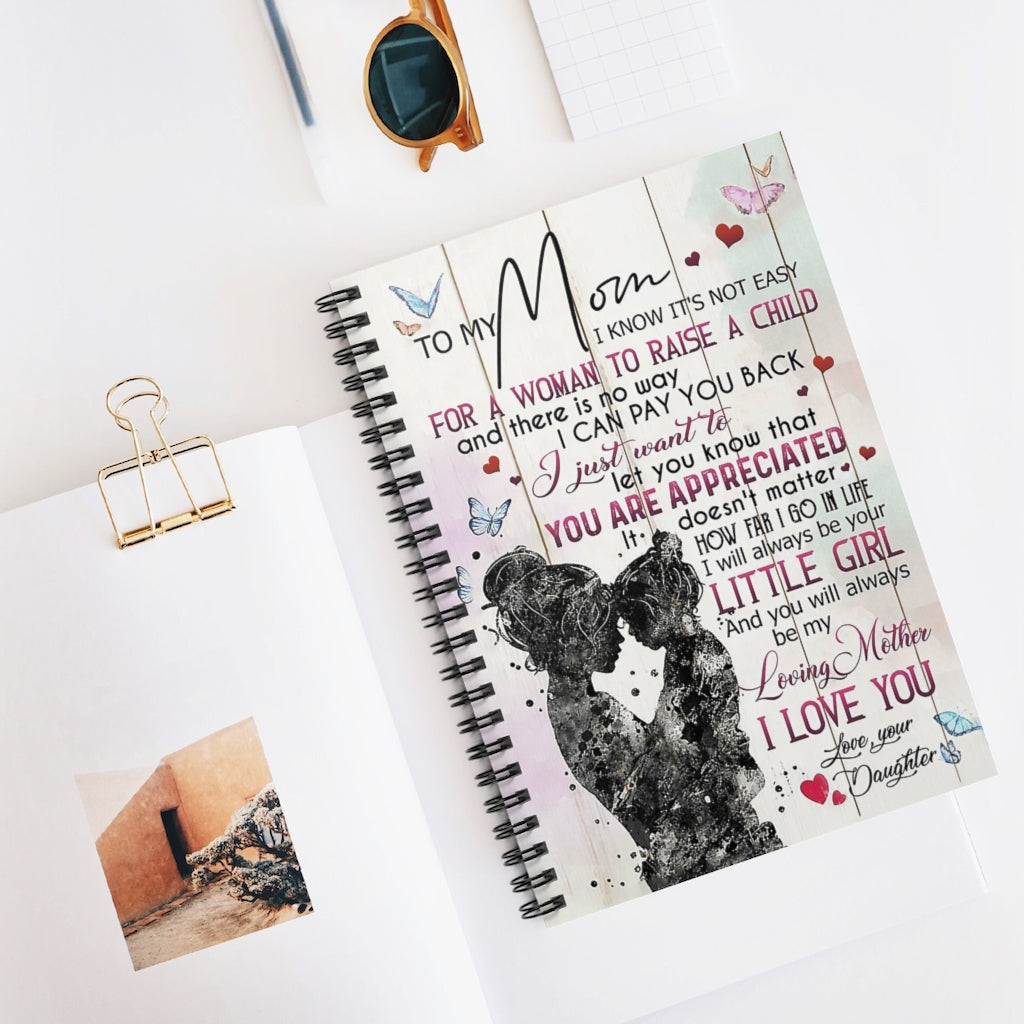 TO MY Mom
I KNOW IT'S NOT EASY
FOR A WOMAN TO RAISE A CHILD
and there is no way
I CAN PAY YOU BACK
I just want to
let you know that
YOU ARE APPRECIATED
It doesn't matter
HOW FAR I GO IN LIFE
I will always be your
LITTLE GIRL
And you will always
be my
Loving Mother
I LOVE YOU
Love your
Daughter